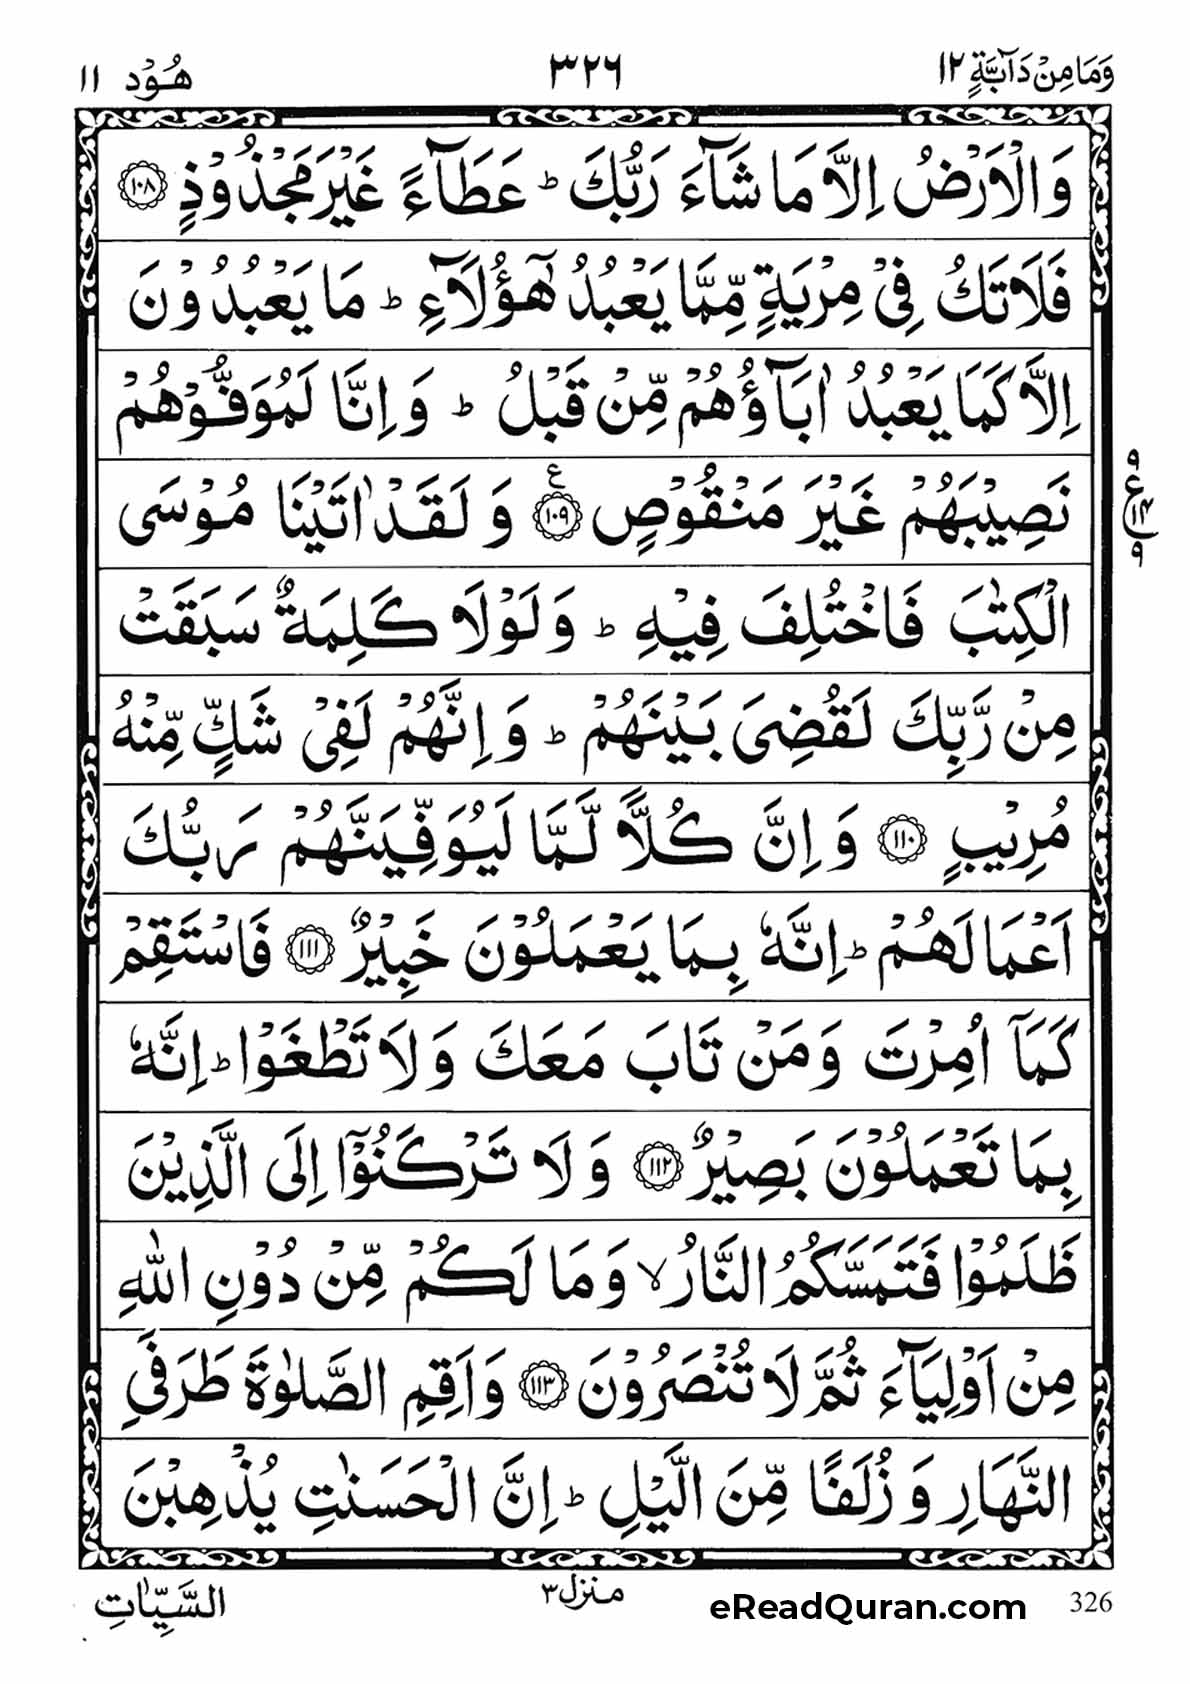 وَمَا مِنْ دَآبَّةٍ ١٢ ٣٢٦ هُوْد ١١
وَالْاَرْضُ اِلَّا مَا شَآءَ رَبُّكَ ؕ عَطَآءً غَيْرَ مَجْذُوْذٍ ﴿١٠٨﴾
فَلَا تَكُ فِيْ مِرْيَةٍ مِّمَّا يَعْبُدُ هٰٓؤُلَآءِ ؕ مَا يَعْبُدُوْنَ
اِلَّا كَمَا يَعْبُدُ اٰبَآؤُهُمْ مِّنْ قَبْلُ ؕ وَ اِنَّا لَمُوَفُّوْهُمْ
نَصِيْبَهُمْ غَيْرَ مَنْقُوْصٍ ﴿١٠٩﴾ ع وَ لَقَدْ اٰتَيْنَا مُوْسَى
الْكِتٰبَ فَاخْتُلِفَ فِيْهِ ؕ وَ لَوْلَا كَلِمَةٌ سَبَقَتْ
مِنْ رَّبِّكَ لَقُضِيَ بَيْنَهُمْ ؕ وَ اِنَّهُمْ لَفِيْ شَكٍّ مِّنْهُ
مُرِيْبٍ ﴿١١٠﴾ وَ اِنَّ كُلًّا لَّمَّا لَيُوَفِّيَنَّهُمْ رَبُّكَ
اَعْمَالَهُمْ ؕ اِنَّهٗ بِمَا يَعْمَلُوْنَ خَبِيْرٌ ﴿١١١﴾ فَاسْتَقِمْ
كَمَآ اُمِرْتَ وَ مَنْ تَابَ مَعَكَ وَ لَا تَطْغَوْا ؕ اِنَّهٗ
بِمَا تَعْمَلُوْنَ بَصِيْرٌ ﴿١١٢﴾ وَ لَا تَرْكَنُوْٓا اِلَى الَّذِيْنَ
ظَلَمُوْا فَتَمَسَّكُمُ النَّارُ ۙ وَ مَا لَكُمْ مِّنْ دُوْنِ اللّٰهِ
مِنْ اَوْلِيَآءَ ثُمَّ لَا تُنْصَرُوْنَ ﴿١١٣﴾ وَ اَقِمِ الصَّلٰوةَ طَرَفَيِ
النَّهَارِ وَ زُلَفًا مِّنَ الَّيْلِ ؕ اِنَّ الْحَسَنٰتِ يُذْهِبْنَ
السَّيِّاٰتِ
منزل ٣
eReadQuran.com 326